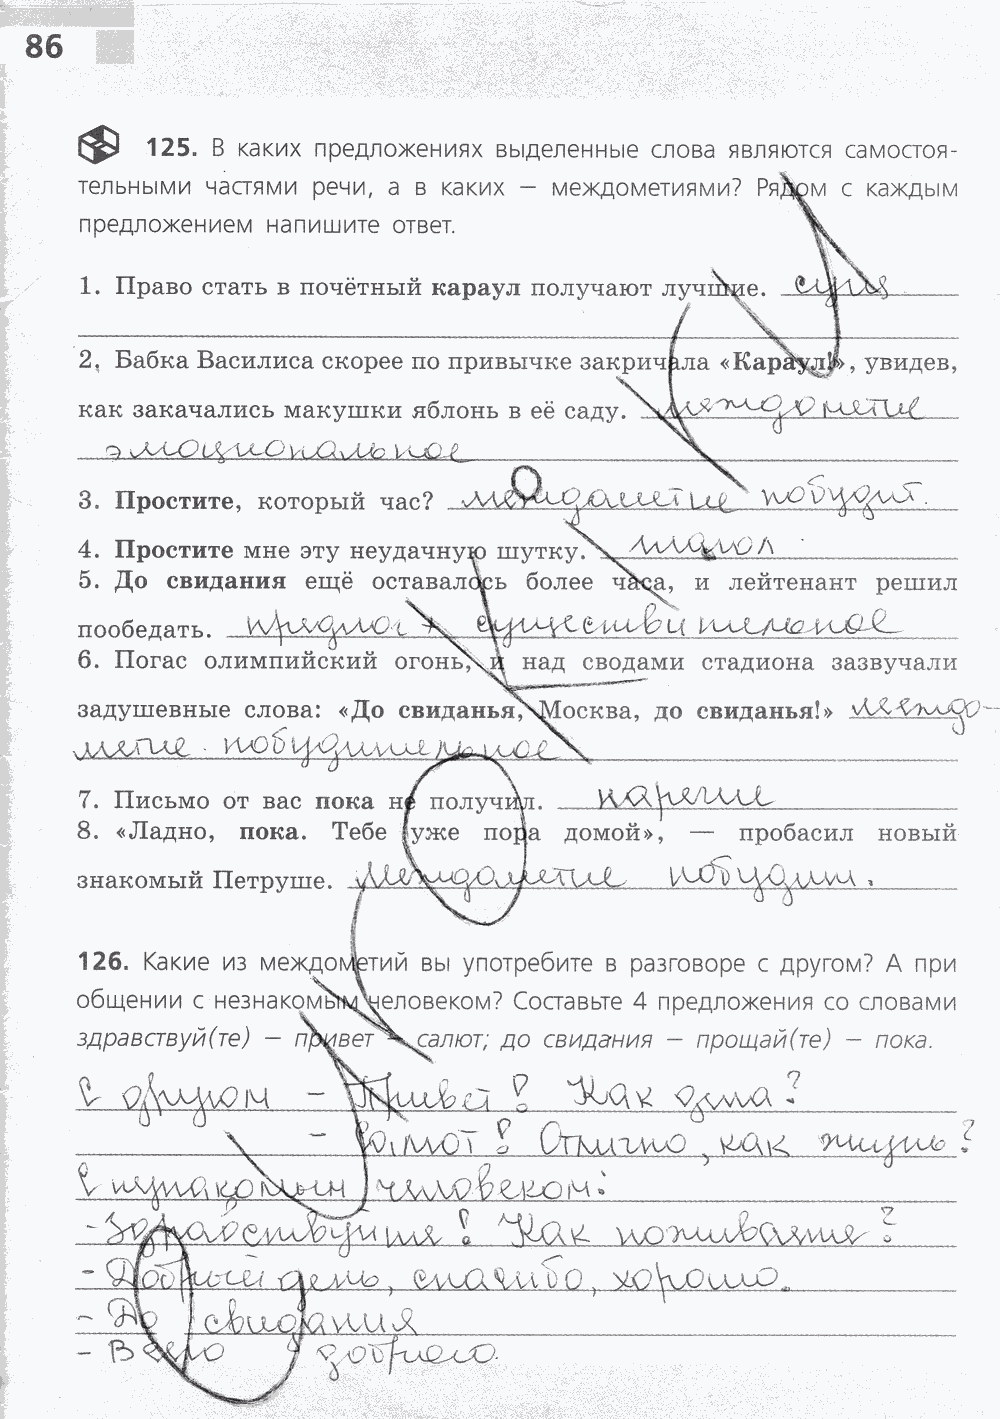 86
125. В каких предложениях выделенные слова являются самостоя-
тельными частями речи, а в каких – междометиями? Рядом с каждым
предложением напишите ответ.
1. Право стать в почётный караул получают лучшие. сущ
2. Бабка Василиса скорее по привычке закричала «Караул!», увидев,
как закачались макушки яблонь в её саду. междометие
эмоциональное
3. Простите, который час? междометие побудит.
4. Простите мне эту неудачную шутку. глагол
5. До свидания ещё оставалось более часа, и лейтенант решил
пообедать. предлог + существительное
6. Погас олимпийский огонь, и над сводами стадиона зазвучали
задушевные слова: «До свиданья, Москва, до свиданья!» междо-
метие побудительное
7. Письмо от вас пока не получил. наречие
8. «Ладно, пока. Тебе уже пора домой», — пробасил новый
знакомый Петруше. междометие побудит.
126. Какие из междометий вы употребите в разговоре с другом? А при
общении с незнакомым человеком? Составьте 4 предложения со словами
здравствуй(те) – привет – салют; до свидания – прощай(те) – пока.
С другом – Привет! Как дела?
– Салют! Отлично, как жизнь?
С незнакомым человеком:
- Здравствуйте! Как поживаете?
- Добрый день, спасибо, хорошо.
- До свидания
- Всего доброго.